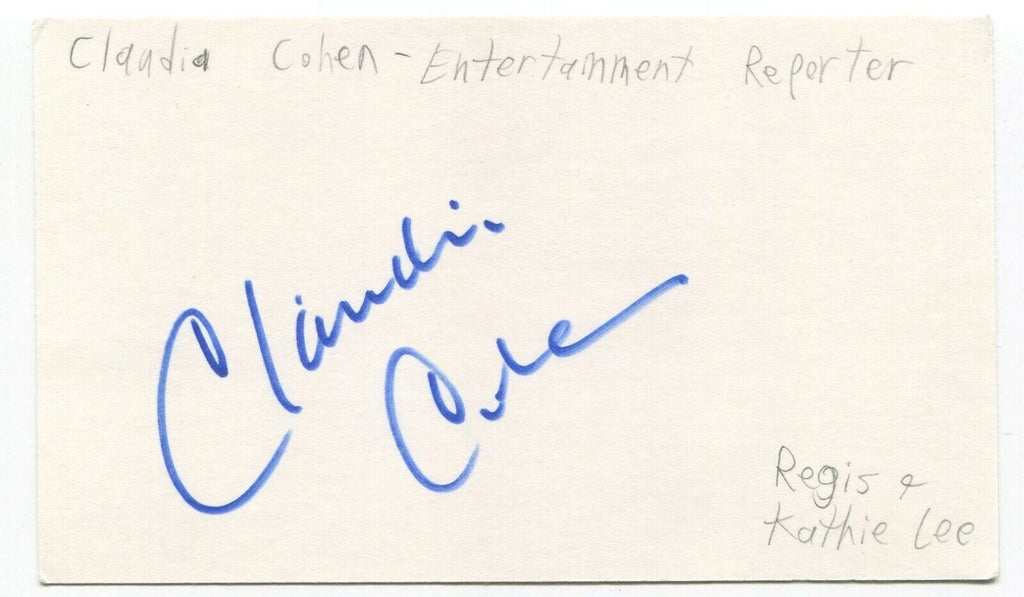 Claudia Cohen - Entertainment Reporter
Claudia
Cohen
Regis &
Kathie Lee